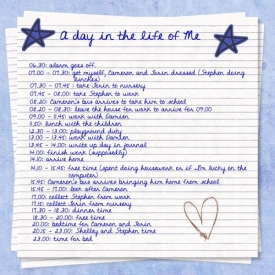 A day in the life of Me
06.30: alarm goes off.
07.00 - 07.30: get myself, Cameron and Torin dressed (Stephen doing
lunches)
07.35 - 07.45: take Torin to nursery
07.45 - 08.00: take Stephen to work
08.20: Cameron's bus arrives to take him to school
08.20 - 08.30: leave the house for work to arrive for 09.00
09.00 - 11.45: work with Damien
11.50: lunch with the children
12.30 - 13.00: playground duty
13.00 - 13.45: work with Damien
13.45 - 14.00: write up day in journal
14.00: finish work (supposedly)
14.10: arrive home
14.10 - 15.45: free time (spent doing housework or if I'm lucky on the
computer)
15.45: Cameron's bus arrives bringing him home from school
15.45 - 17.00: look after Cameron
17.00: collect Stephen from work
17.15: collect Torin from nursery
17.30 - 18.30: dinner time
18.30 - 20.00: free time
20.00: bedtime for Cameron and Torin
20.15 - 23.00: Shelley and Stephen time
23.00: time for bed